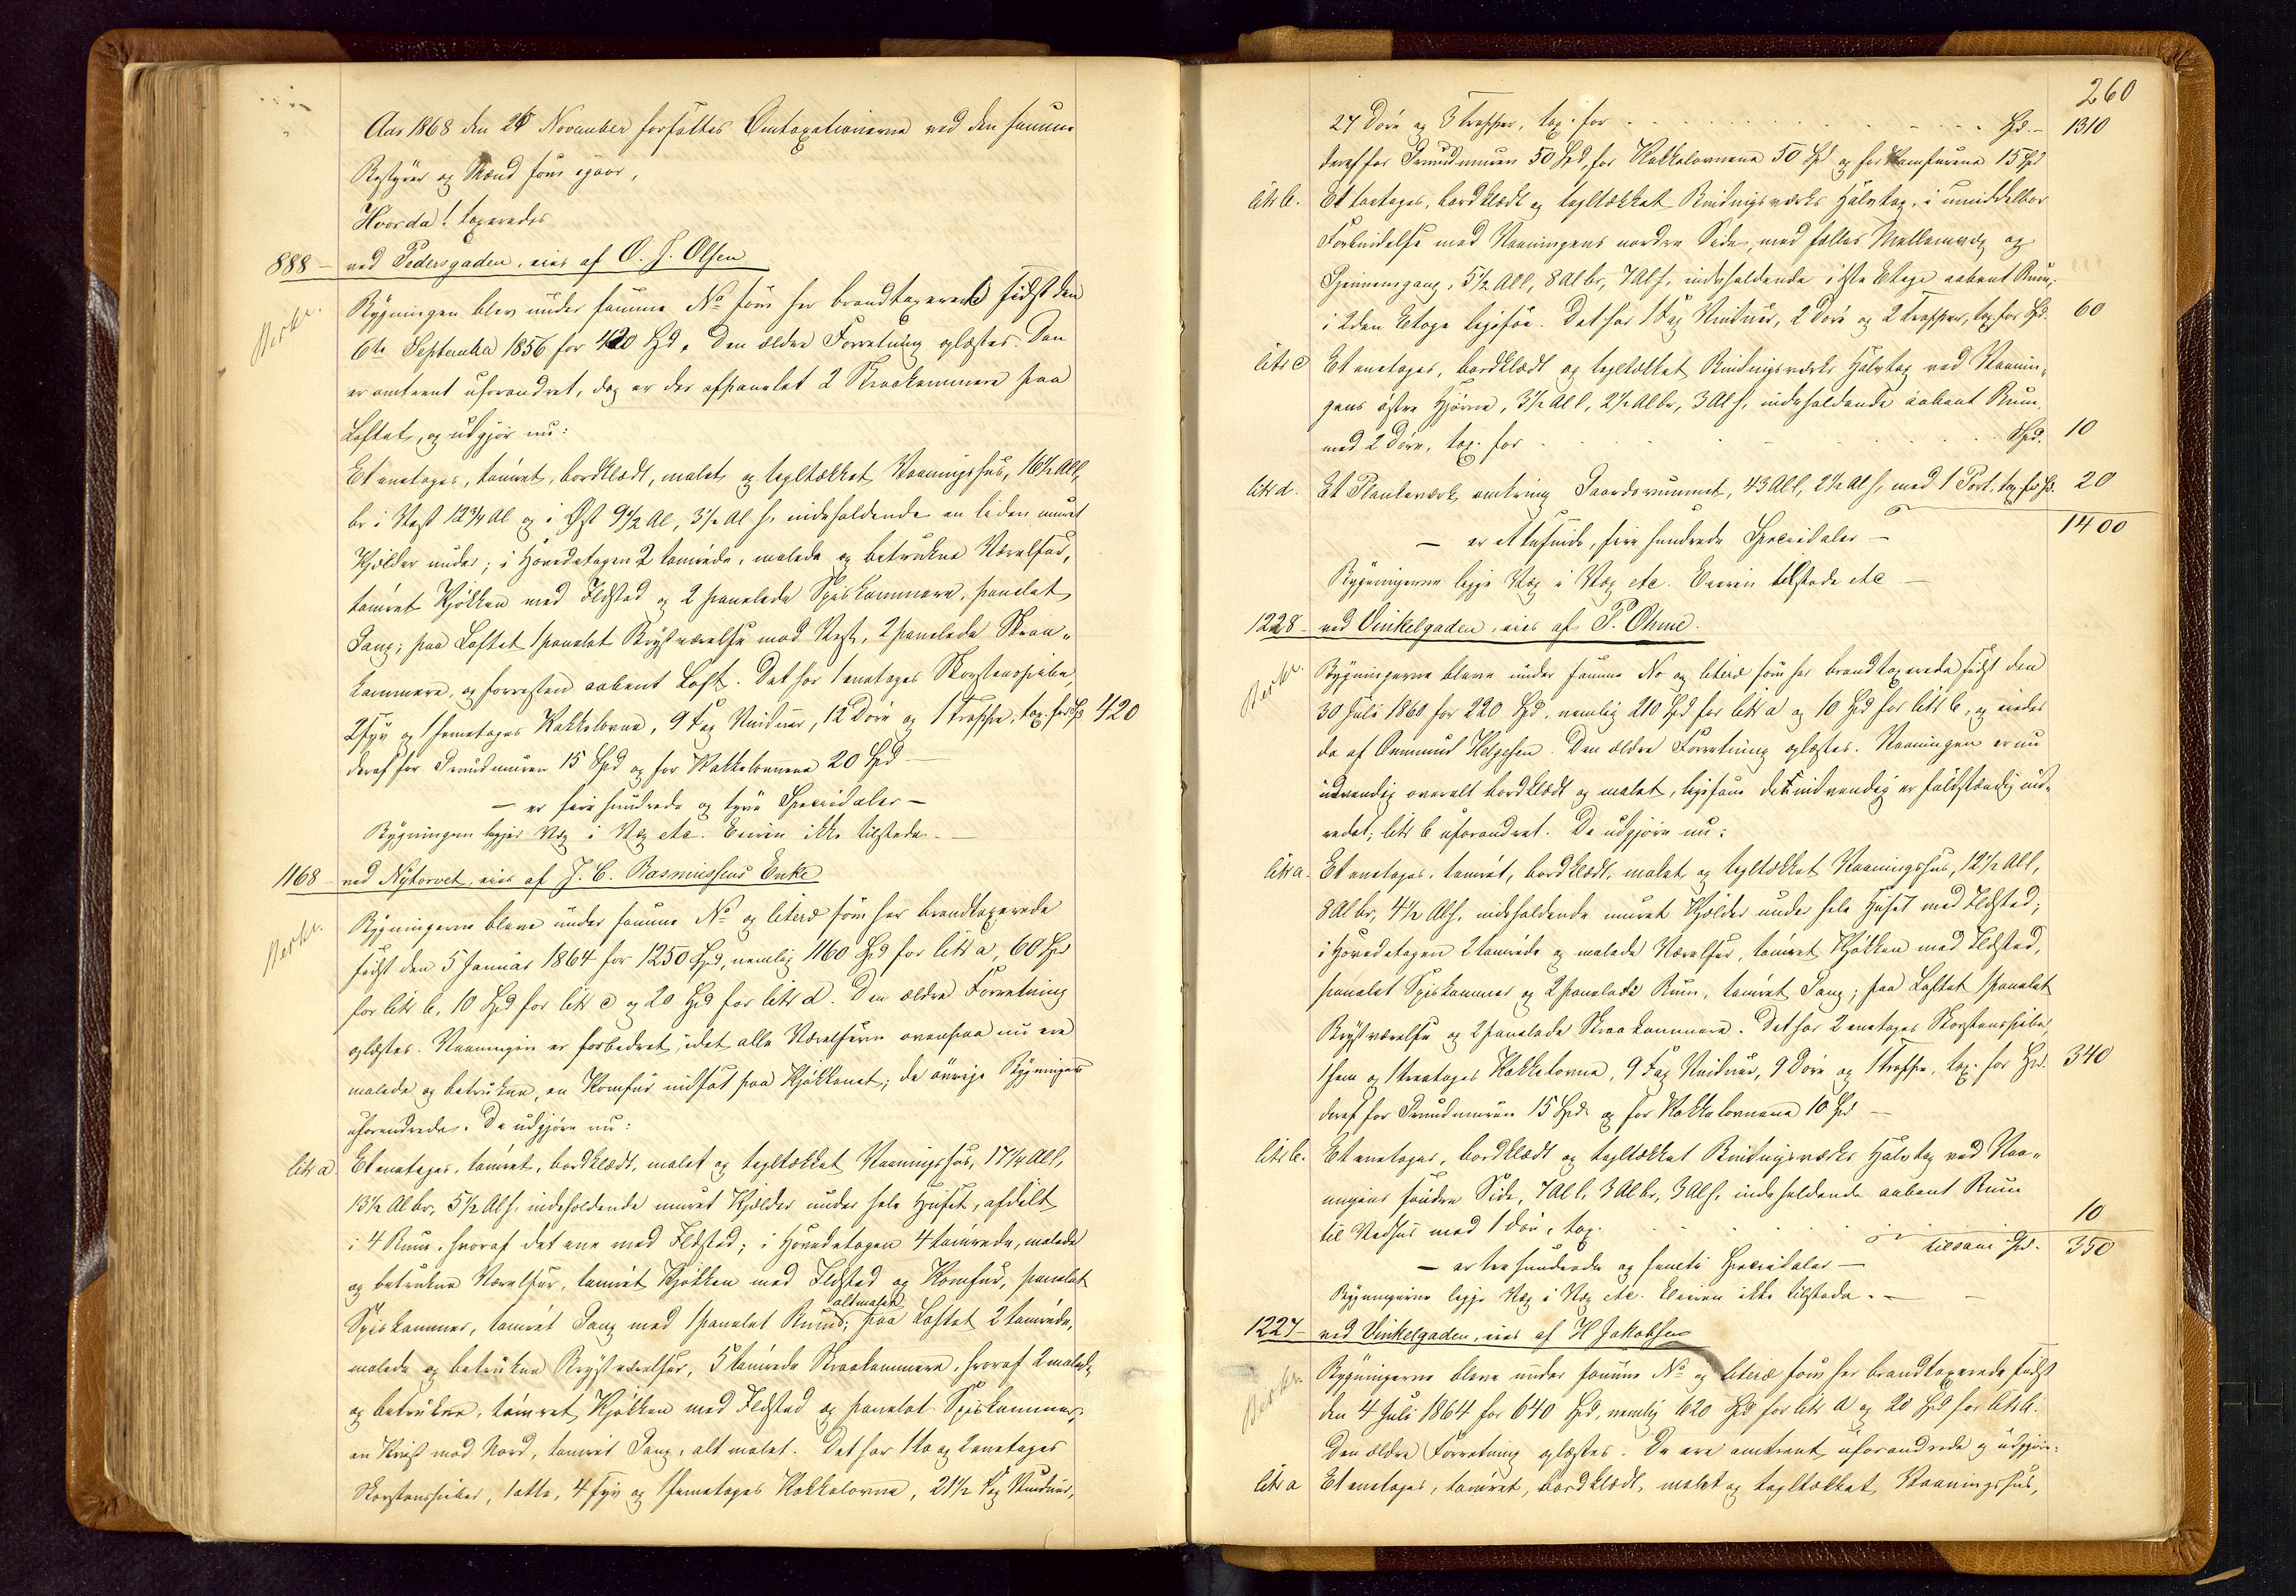 Aar 1868 den 26 November fortsattes Omtaxationerne ved den samme
Bestyrer og Mænd som igaar,
Hvorda! taxeredes
888 – ved Pedersgaden, eies af O. J. Olsen
Bygningen blev under samme No som her brandtaxerede sidst den
6te September 1856 for 420 Spd. Den ældre Forretning oplæstes. Den
er omtrent uforandret, dog er der afpanelet 2 Skraakammere paa
Loftet, og udgjør nu:
Et enetages, tømret, bordklædt, malet og tegltækket Vaaningshus, 16½ Al l,
br i Vest 12¾ Al og i Øst 9½ Al, 3½ Al h, indeholdende en liden muret
Kjælder under; i Hovedetagen 2 tømrede, malede og betrukne Værelser,
tømret Kjøkken med Ildsted og 2 panelede Spiskammere, panelet
Gang; paa Loftet 1 panelet Kvistværelse mod Vest, 2 panelede Skraa-
kammere, og forresten aabent Loft. Det har 1 enetages Skorstenspibe
2 fyr og 1 femetages Kakkelovne, 9 Fag Vinduer, 12 Døre og 1 Trappe, tax. for Sp 420
deraf for Grundmuren 15 Spd og for Kakkelovnene 20 Spd —
– er fire hundrede og tyve Speciedaler –
Bygningen ligger Væg i Væg etc. Eieren ikke tilstede. –
1168 – ved Nytorvet, eies af J. C. Rasmussens Enke
Bygningerne bleve under samme No og literæ som her brandtaxerede
sidst den 5 Januar 1864 for 1250 Spd, nemlig 1160 Spd for litr a, 60 Spd
for litr b, 10 Spd for litr c og 20 Spd for litr d. Den ældre Forretning
oplæstes. Vaaningen er forbedret, idet alle Værelserne ovenpaa nu ere
malede og betrukne, en Komfur indsat paa Kjøkkenet; de øvrige Bygninger
uforandrede. De udgjøre nu:
litr a. Et enetages, tømret, bordklædt, malet og tegltækket Vaaningshus, 17¼ Al l,
13½ Al br, 5½ Al h, indeholdende muret Kjælder under hele Huset, afdelt
i 4 Rum, hvoraf det ene med Ildsted; i Hovedetagen 4 tømrede, malede
og betrukne Værelser, tømret Kjøkken med Ildsted og Komfur, panelet
alt malet
Spiskammer, tømret Gang med 1 panelet Rum; paa Loftet 2 tømrede,
malede og betrukne Kvistværelser, 5 tømrede Skraakammere, hvoraf 2 malede
og betrukne, tømret Kjøkken med Ildsted og panelet Spiskammer,
en Kvist mod Nord, tømret Gang, alt malet. Det har 1 to og 2 enetages
Skorstenspiber, 1 otte, 4 fyr og 1 femetages Kakkelovne, 21½ Fag Vinduer,
260
27 Døre og 3 Trapper, tax. for Spd. – 1310
deraf for Grundmuren 50 Spd, for Kakkelovnene 50 Spd og for Komfurene 15 Spd
litr b. Et toetages, bordklædt og tegltækket Bindingsværks Halvtag, i umiddelbar
Forbindelse med Vaaningens nordre Side, med fælles Mellemvæg og
Gjennemgang, 5½ Al l, 8 Al br, 7 Al h, indeholdende i 1ste Etage aabent Rum,
i 2den Etage ligesaa. Det har 1 Fag Vinduer, 2 Døre og 2 Trapper, tax. for Spd. 60
litr c Et enetages, bordklædt og tegltækket Bindingsværks Halvtag ved Vaanin-
gens østre Hjørne, 3½ Al l, 2½ Al br, 3 Al h, indeholdende aabent Rum,
med 2 Døre, tax. for Spd. 10
litr d. Et Plankeværk omkring Gaardsrummet, 43 Al l, 2½ Al h, med 1 Port, tax. for Sp. 20
1400
– er et tusinde, fire hundrede Speciedaler –
Bygningerne ligge Væg i Væg etc. Eieren tilstede etc –
1228 – ved Vinkelgaden, eies af P. Ohme.
Bygningerne bleve under samme No og literæ som her brandtaxerede sidst den
30 Juli 1860 for 220 Spd, nemlig 210 Spd for litr a og 10 Spd for litr b, og eiedes
da af Ommund Helgesen. Den ældre Forretning oplæstes. Vaaningen er nu
udvendig overalt bordklædt og malet, ligesom det indvendig er fuldstændig ind-
redet; litr b uforandret. De udgjøre nu:
litr a. Et enetages, tømret, bordklædt, malet og tegltækket Vaaningshus, 12½ Al l,
8 Al br, 4½ Al h, indeholdende muret Kjælder under hele Huset med Ildsted;
i Hovedetagen 2 tømrede og malede Værelser, tømret Kjøkken med Ildsted,
panelet Spiskammer og 2 panelede Rum, tømret Gang; paa Loftet 1 panelet
Kvistværelse og 2 panelede Skraakammere. Det har 2 enetages Skorstenspiber,
1 fem og 1 treetages Kakkelovne, 9 Fag Vinduer, 9 Døre og 1 Trappe, tax. for Spd. 340
deraf for Grundmuren 15 Spd. og for Kakkelovnene 10 Spd –
litr b. Et enetages, bordklædt og tegltækket Bindingsværks Halvtag ved Vaa-
ningens søndre Side, 7 Al l, 3 Al br, 3 Al h, indeholdende aabent Rum
til Vedhus med 1 Dør, tax. 10
tilsam Spd. 350
– er tre hundrede og femti Speciedaler –
Bygningerne ligge Væg i Væg etc. Eieren ikke tilstede. –
1227 – ved Vinkelgaden, eies af H Jakobsen
Bygningerne bleve under samme No og literæ som her brandtaxerede sidst
den 4 Juli 1864 for 640 Spd, nemlig 620 Spd for litr a og 20 Spd for litr b.
Den ældre Forretning oplæstes. De ere omtrent uforandrede og udgjøre:
litr a Et enetages, tømret, bordklædt, malet og tegltækket Vaaningshus,